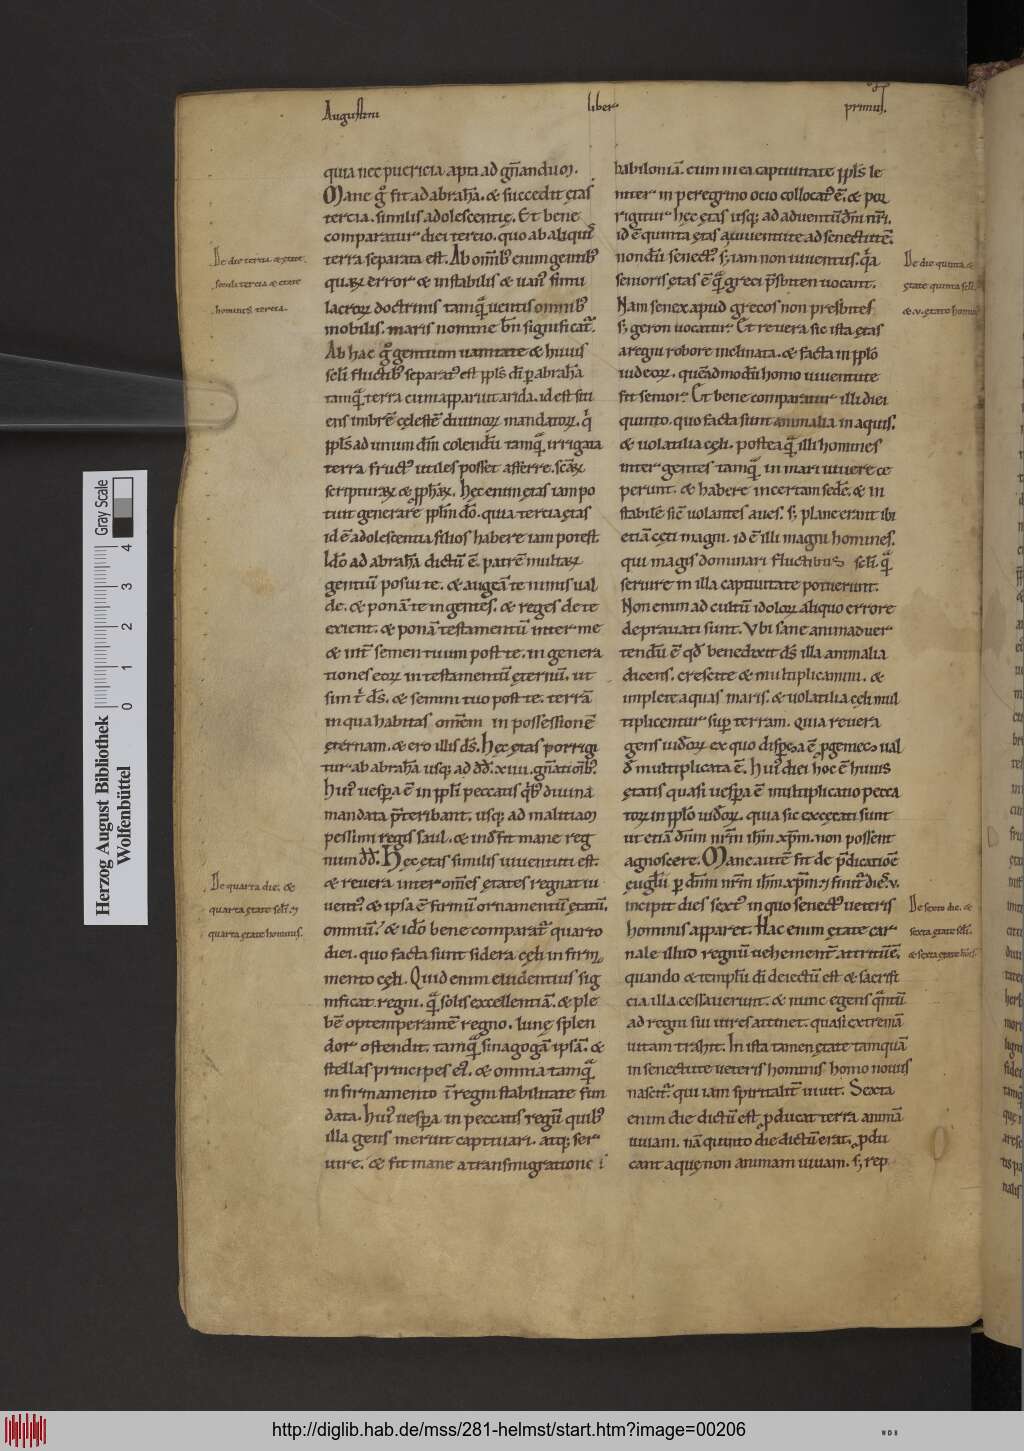 Augustini liber primus.
quia nec puericia apta ad gn̄andum.
Mane gͦ fit ad abrahā. & succedit ętas
tercia. similis adolescentię. Et bene
comparatur diei tercio. quo ab aliquis
terra separata est. Ab om̄ib; enim gentib;
quaꝝ error & instabilis & uan' simu
lacroꝝ doctrinis tamquā uentis omnib;
mobilis. maris nomine bn̄ significat'.
Ab hac gͦ gentium uanitate & huius
scl̄i fluctib; separat' est ppl̄s dī p abrahā
tamquā terra cum apparuit arida. id est siti
ens imbrē cęlestē diuinoꝝ mandatoꝝ. q'
ppl̄s ad unum dm̄ colendū tamquā irrigata
terra fruct' utiles posset afferre. scāꝝ
scripturaꝝ & ꝓph&aꝝ. Hęc enim ętas iam po
tuit generare ppl̄m dō. quia tercia ętas
id ē adolescentia filios habere iam potest.
Ido ad abrahā dictū ē. patrē multaꝝ
gentiū posui te. & augeā te nimis ual
de. & ponā te in gentes. & reges de te
exient. & ponā testamentū inter me
& int' semen tuum post te. in genera
tiones eoꝝ in testamentū ęternū. ut
sim t' d̄s. & semini tuo post te. terrā
in qua habitas omēm in possessionē
ęternam. & ero illis d̄s. Hęc ętas porrigi
tur ab abrahā usq; ad dd̄. xiiii. gn̄ationib;.
Hui' uespa ē in ppl̄i peccatis quib; diuina
mandata p̄teribant. usq; ad malitiam
pessimi regis saul. & ind' fit mane reg
num dd̄. Hęc ętas similis iuuentuti est.
& reuera inter om̄es ętates regnat iu
uent'. & ipsa ē firmū ornamentū ętatū.
omniū. & ido bene comparat' quarto
diei. quo facta sunt sidera cęli in firma
mento cęli. Quid enim euidentius sig
nificat regni. quā solis excellentiā. & ple
bē optemperantē regno. lunę splen
dor ostendit. tamquā sinagogā ipsā. &
stellas principes ei'. & omnia tamquā
in firmamento ī regni stabilitate fun
data. Hui' uespa in peccatis regū quib;
illa gens meruit captiuari. atq; ser
uire. & fit mane a transmigratione ī
babiloniā. cum in ea captiuitate ppl̄s le
niter in peregrino ocio collocat' ē. & por
rigitur hęc ętas usq; ad aduentū dn̄i nr̄i.
id ē quinta ętas a iuuentute ad senectutē.
nondū senect'. s; iam non iuuentus. quia
senioris ętas ē quā greci p̄sbiten uocant.
Nam senex apud grecos non presbites
s; geron uocatur. Et reuera sic ista ętas
a regni robore inclinata. & facta in pplo
iudeoꝝ. quēadmodū homo iuuentute
fit senior. Et bene comparatur illi diei
quinto. quo facta sunt animalia in aquis.
& uolatilia cęli. postea quā illi homines
inter gentes tamquā in mari uiuere ce
perunt. & habere incertam sedē. & in
stabilē sic' uolantes aues. s; plane erant ibi
etiā cęti magni. id ē illi magni homines.
qui magis dominari fluctibus scl̄i quā
seruire in illa captiuitate potuerunt.
Non enim ad cultū idoloꝝ aliquo errore
deprauati sunt. Vbi sane animaduer
tendū ē qd' benedixit d̄s illa animalia
dicens. crescite & multiplicamini. &
implete aquas maris. & uolatilia cęli mul
tiplicentur sup terram. quia reuera
gens iudęoꝝ ex quo dispersa ē p gentes ual
d' multiplicata ē. Hui' diei hoc ē huius
ętatis quasi uespa ē multiplicatio pecca
toꝝ in pplo iudeoꝝ. quia sic excecati sunt
ut etiā dn̄m nr̄m ihm̄ xp̄m. non possent
agnoscere. Mane autē fit de p̄dicatiōe
ęuglii p dn̄m nr̄m ihm̄ xp̄m. & finit' dies. v.
incipit dies sext' in quo senect' ueteris
hominis apparet. Hac enim ętate car
nale illud regnū uehement' attritū ē.
quando & templū dī deiectū est & sacrifi
cia illa cessauerunt. & nunc ea gens quātū
ad regni sui uires attinet. quasi extremā
uitam trahit. In ista tamen ętate tamquā
in senectute ueteris hominis homo nouus
nascit'. qui iam spiritalit' uiuit. Sexta
enim die dictū est. ꝓducat terra animā
uiuam. nā quinto die dictū erat. ꝓdu
cant aquę non animam uiuam. s; rep
De die tercia & ętate
seculi tercia & etate
hominis tercia.
De quarta die. &
quarta ętate scl̄i. &
quarta ętate hominis.
De die quinta. &
ętate quinta scl̄i
& .v. ętate hominis
De sexto die. &
sexta ętate scl̄i.
& sexta ętate hōis.
Herzog August Bibliothek
Wolfenbüttel
0 1 2 3 4
Gray Scale
http://diglib.hab.de/mss/281-helmst/start.htm?image=00206
WDB